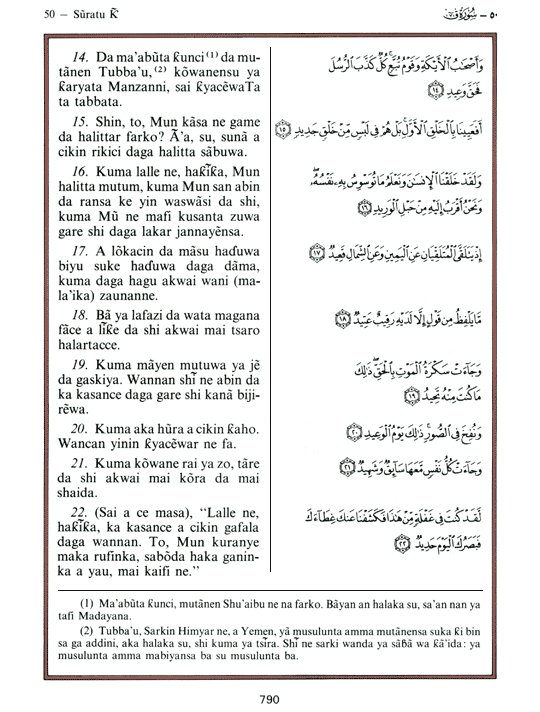 50 — Sūratu Ƙ
٥٠ - سُورَةُ ق
14. Da ma'abūta ƙunci(1) da mu-
tānen Tubba'u,(2) kōwanensu ya
ƙaryata Manzanni, sai ƙyacēwaTa
ta tabbata.
15. Shin, to, Mun kāsa ne game
da halittar farko? Ā'a, su, sunā a
cikin rikici daga halitta sābuwa.
16. Kuma lalle ne, haƙīƙa, Mun
halitta mutum, kuma Mun san abin
da ransa ke yin waswāsi da shi,
kuma Mū ne mafi kusanta zuwa
gare shi daga lakar jannayēnsa.
17. A lōkacin da māsu haɗuwa
biyu suke haɗuwa daga dāma,
kuma daga hagu akwai wani (ma-
la'ika) zaunanne.
18. Bā ya lafazi da wata magana
fāce a līƙe da shi akwai mai tsaro
halartacce.
19. Kuma māyen mutuwa ya jē
da gaskiya. Wannan shī ne abin da
ka kasance daga gare shi kanā biji-
rēwa.
20. Kuma aka hūra a cikin ƙaho.
Wancan yinin ƙyacēwar ne fa.
21. Kuma kōwane rai ya zo, tāre
da shi akwai mai kōra da mai
shaida.
22. (Sai a ce masa), “Lalle ne,
haƙīƙa, ka kasance a cikin gafala
daga wannan. To, Mun kuranye
maka rufinka, sabōda haka ganin-
ka a yau, mai kaifi ne.”
وَأَصْحَٰبُ ٱلْأَيْكَةِ وَقَوْمُ تُبَّعٍ كُلٌّ كَذَّبَ ٱلرُّسُلَ
فَحَقَّ وَعِيدِ ١٤
أَفَعَيِينَا بِٱلْخَلْقِ ٱلْأَوَّلِ بَلْ هُمْ فِى لَبْسٍ مِّنْ خَلْقٍ جَدِيدٍ ١٥
وَلَقَدْ خَلَقْنَا ٱلْإِنسَٰنَ وَنَعْلَمُ مَا تُوَسْوِسُ بِهِۦ نَفْسُهُۥ
وَنَحْنُ أَقْرَبُ إِلَيْهِ مِنْ حَبْلِ ٱلْوَرِيدِ ١٦
إِذْ يَتَلَقَّى ٱلْمُتَلَقِّيَانِ عَنِ ٱلْيَمِينِ وَعَنِ ٱلشِّمَالِ قَعِيدٌ ١٧
مَّا يَلْفِظُ مِن قَوْلٍ إِلَّا لَدَيْهِ رَقِيبٌ عَتِيدٌ ١٨
وَجَآءَتْ سَكْرَةُ ٱلْمَوْتِ بِٱلْحَقِّ ذَٰلِكَ
مَا كُنتَ مِنْهُ تَحِيدُ ١٩
وَنُفِخَ فِى ٱلصُّورِ ذَٰلِكَ يَوْمُ ٱلْوَعِيدِ ٢٠
وَجَآءَتْ كُلُّ نَفْسٍ مَّعَهَا سَآئِقٌ وَشَهِيدٌ ٢١
لَّقَدْ كُنتَ فِى غَفْلَةٍ مِّنْ هَٰذَا فَكَشَفْنَا عَنكَ غِطَآءَكَ
فَبَصَرُكَ ٱلْيَوْمَ حَدِيدٌ ٢٢
(1) Ma'abūta ƙunci, mutānen Shu'aibu ne na farko. Bāyan an halaka su, sa'an nan ya
tafi Madayana.
(2) Tubba'u, Sarkin Himyar ne, a Yemen, yā musulunta amma mutānensa suka ƙi bin
sa ga addini, aka halaka su, shi kuma ya tsīra. Shī ne sarki wanda ya sāɓā wa ƙā'ida: ya
musulunta amma mabiyansa ba su musulunta ba.
790